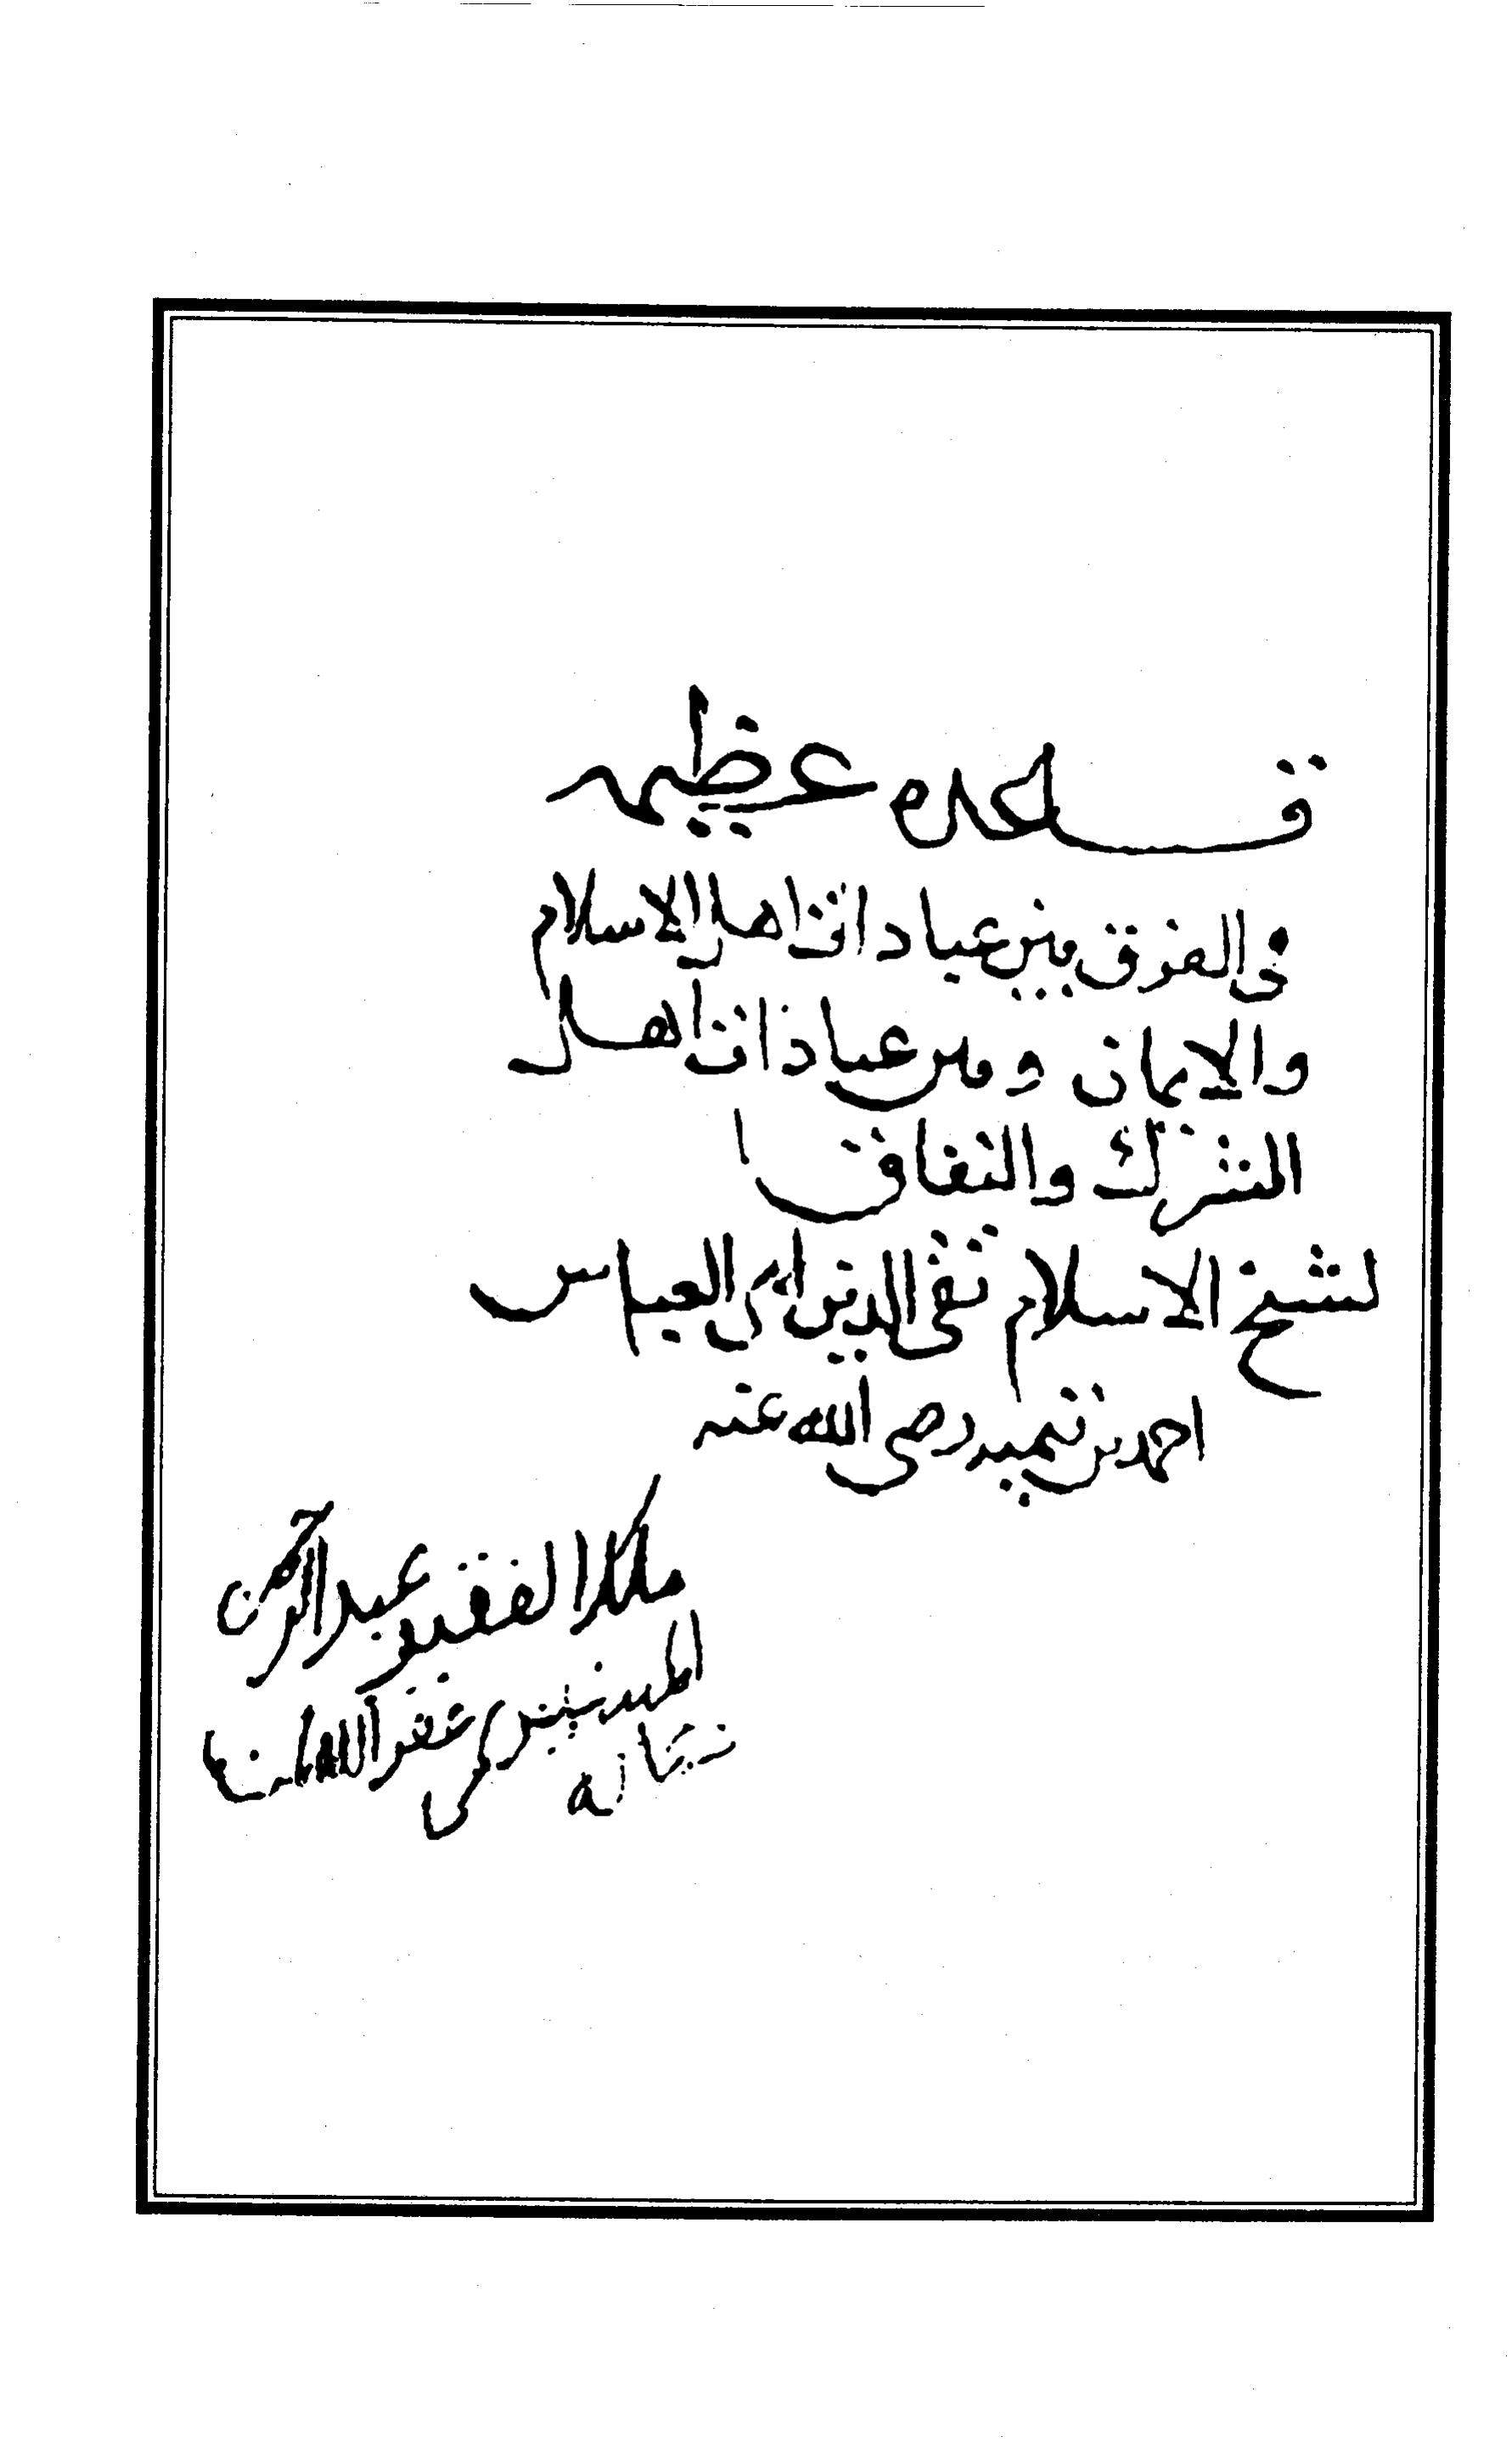 قاعدة عظيمه
في الفرق بين عبادات اهل الاسلام
والايمان وبين عبادات اهل
الشرك والنفاق
لشيخ الاسلام تقي الدين ابي العباس
احمد بن تيميه رضي الله عنه
ملك الفقير عبد الرحمن
غفر الله